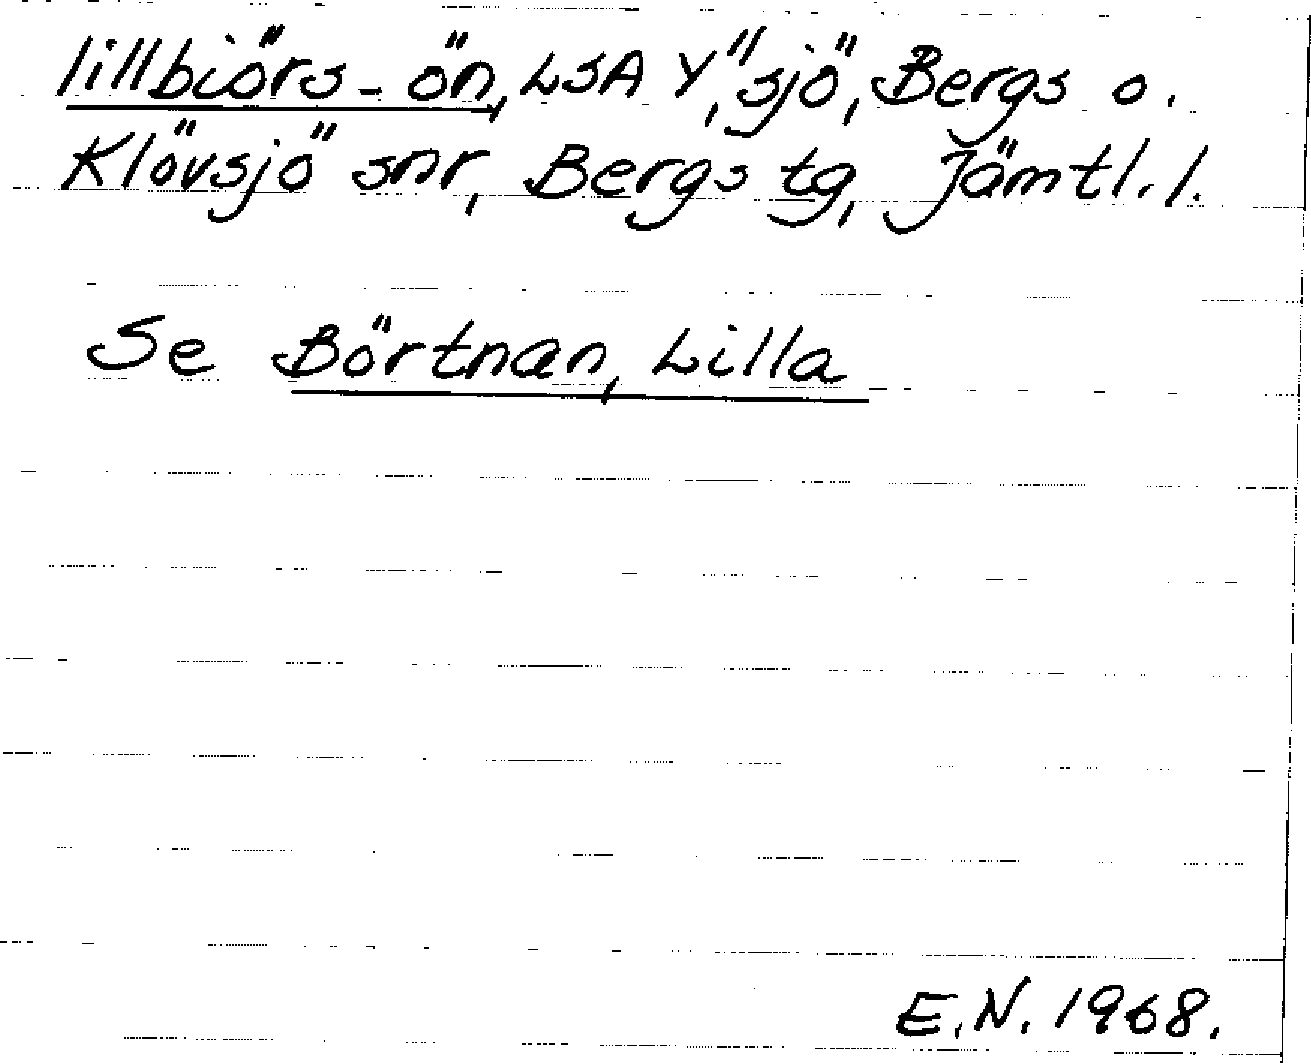 lillbiörs-ön, LSA Y, "sjö", Bergs o.
Klövsjö snr, Bergs tg, Jämtl. l.
Se Börtnan, Lilla
E.N. 1968.